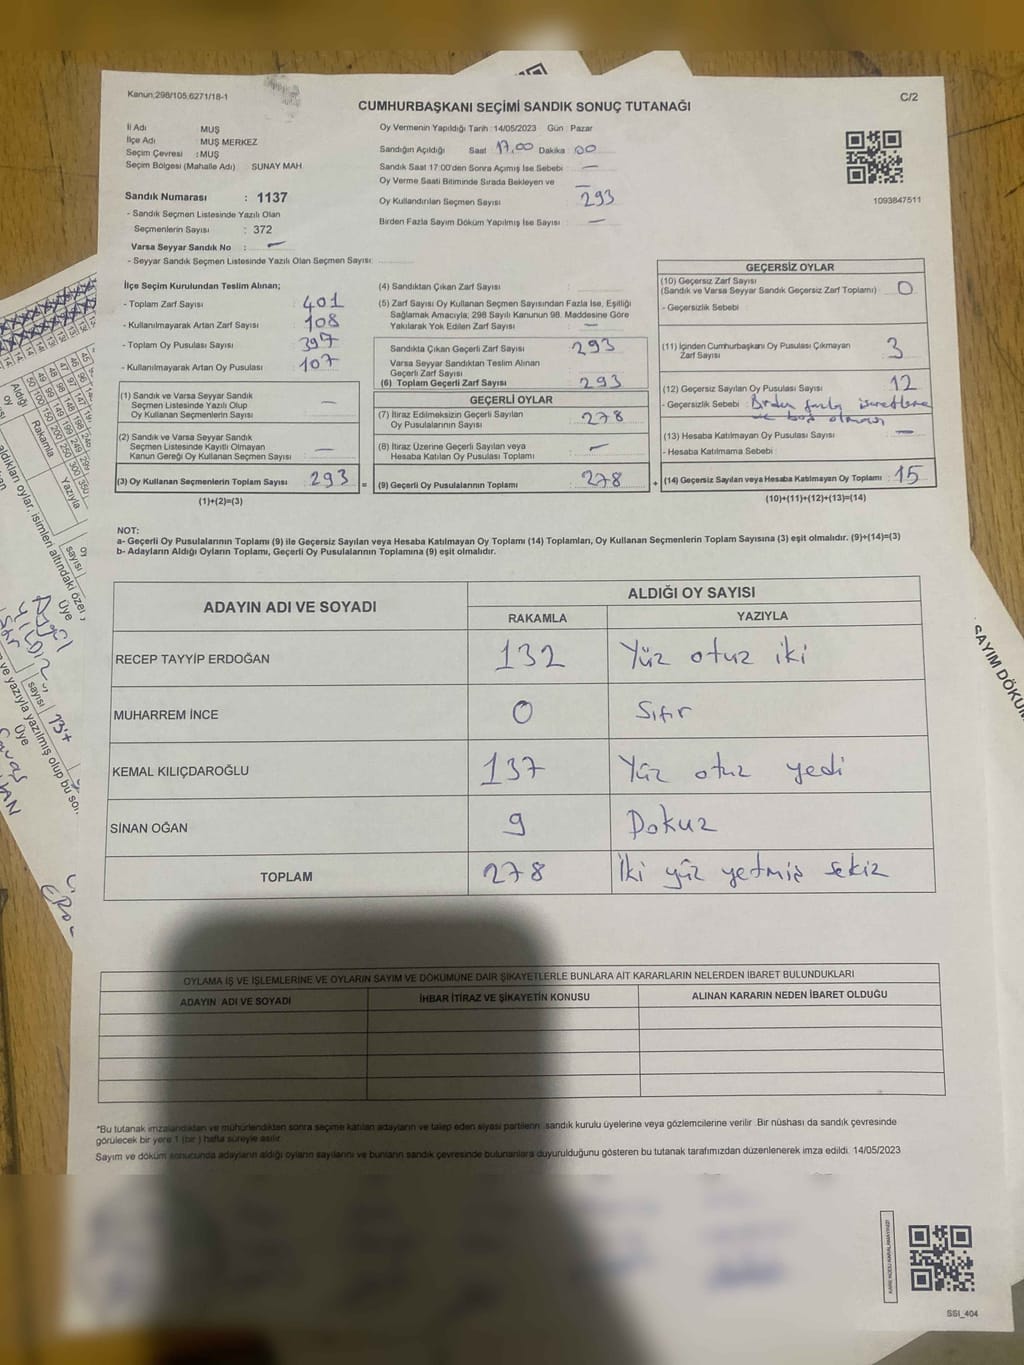 Kanun,298/105,6271/18-1
CUMHURBAŞKANI SEÇİMİ SANDIK SONUÇ TUTANAĞI
C/2
İl Adı MUŞ
İlçe Adı MUŞ MERKEZ
Seçim Çevresi : MUŞ
Seçim Bölgesi (Mahalle Adı) : SUNAY MAH.
Sandık Numarası : 1137
- Sandık Seçmen Listesinde Yazılı Olan
Seçmenlerin Sayısı : 372
Varsa Seyyar Sandık No : —
- Seyyar Sandık Seçmen Listesinde Yazılı Olan Seçmen Sayısı:
Oy Vermenin Yapıldığı Tarih :14/05/2023 Gün : Pazar
Sandığın Açıldığı Saat 17.00 Dakika : 00
Sandık Saat 17:00'den Sonra Açımış İse Sebebi : —
Oy Verme Saati Bitiminde Sırada Bekleyen ve —
Oy Kullandırılan Seçmen Sayısı : 293
Birden Fazla Sayım Döküm Yapılmış İse Sayısı : —
1093847511
İlçe Seçim Kurulundan Teslim Alınan;
- Toplam Zarf Sayısı : 401
- Kullanılmayarak Artan Zarf Sayısı : 108
- Toplam Oy Pusulası Sayısı : 397
- Kullanılmayarak Artan Oy Pusulası : 107
(1) Sandık ve Varsa Seyyar Sandık
Seçmen Listesinde Yazılı Olup
Oy Kullanan Seçmenlerin Sayısı : —
(2) Sandık ve Varsa Seyyar Sandık
Seçmen Listesinde Kayıtlı Olmayan
Kanun Gereği Oy Kullanan Seçmen Sayısı : —
(3) Oy Kullanan Seçmenlerin Toplam Sayısı : 293 =
(1)+(2)=(3)
(4) Sandıktan Çıkan Zarf Sayısı :
(5) Zarf Sayısı Oy Kullanan Seçmen Sayısından Fazla İse, Eşitliği
Sağlamak Amacıyla; 298 Sayılı Kanunun 98. Maddesine Göre
Yakılarak Yok Edilen Zarf Sayısı : —
Sandıkta Çıkan Geçerli Zarf Sayısı : 293
Varsa Seyyar Sandıktan Teslim Alınan
Geçerli Zarf Sayısı :
(6) Toplam Geçerli Zarf Sayısı : 293
GEÇERLİ OYLAR
(7) İtiraz Edilmeksizin Geçerli Sayılan
Oy Pusulasının Sayısı : 278
(8) İtiraz Üzerine Geçerli Sayılan veya
Hesaba Katılan Oy Pusulası Toplamı : —
(9) Geçerli Oy Pusulalarının Toplamı : 278 +
GEÇERSİZ OYLAR
(10) Geçersiz Zarf Sayısı
(Sandık ve Varsa Seyyar Sandık Geçersiz Zarf Toplamı) : 0
- Geçersizlik Sebebi :
(11) İçinden Cumhurbaşkanı Oy Pusulası Çıkmayan
Zarf Sayısı : 3
(12) Geçersiz Sayılan Oy Pusulası Sayısı : 12
- Geçersizlik Sebebi : Birden fazla işaretleme
ve boş olması
(13) Hesaba Katılmayan Oy Pusulası Sayısı : —
- Hesaba Katılmama Sebebi :
(14) Geçersiz Sayılan veya Hesaba Katılmayan Oy Toplamı : 15
(10)+(11)+(12)+(13)=(14)
NOT:
a- Geçerli Oy Pusulalarının Toplamı (9) ile Geçersiz Sayılan veya Hesaba Katılmayan Oy Toplamı (14) Toplamları, Oy Kullanan Seçmenlerin Toplam Sayısına (3) eşit olmalıdır. (9)+(14)=(3)
b- Adayların Aldığı Oyların Toplamı, Geçerli Oy Pusulalarının Toplamına (9) eşit olmalıdır.
ADAYIN ADI VE SOYADI ALDIĞI OY SAYISI
RAKAMLA YAZIYLA
RECEP TAYYİP ERDOĞAN 132 Yüz otuz iki
MUHARREM İNCE 0 Sıfır
KEMAL KILIÇDAROĞLU 137 Yüz otuz yedi
SİNAN OĞAN 9 Dokuz
TOPLAM 278 İki yüz yetmiş sekiz
OYLAMA İŞ VE İŞLEMLERİNE VE OYLARIN SAYIM VE DÖKÜMÜNE DAİR ŞİKAYETLERLE BUNLARA AİT KARARLARIN NELERDEN İBARET BULUNDUKLARI
ADAYIN ADI VE SOYADI İHBAR İTİRAZ VE ŞİKAYETİN KONUSU ALINAN KARARIN NEDEN İBARET OLDUĞU
*Bu tutanak imzalandıktan ve mühürlendikten sonra seçime katılan adayların ve talep eden siyasi partilerin sandık kurulu üyelerine veya gözlemcilerine verilir. Bir nüshası da sandık çevresinde
görülecek bir yere 1 (bir) hafta süreyle asılır.
Sayım ve döküm sonucunda adayların aldığı oyların sayılarını ve bunların sandık çevresinde bulunanlara duyurulduğunu gösteren bu tutanak tarafımızdan düzenlenerek imza edildi. 14/05/2023
SSI_404
SAYIM DÖKÜM